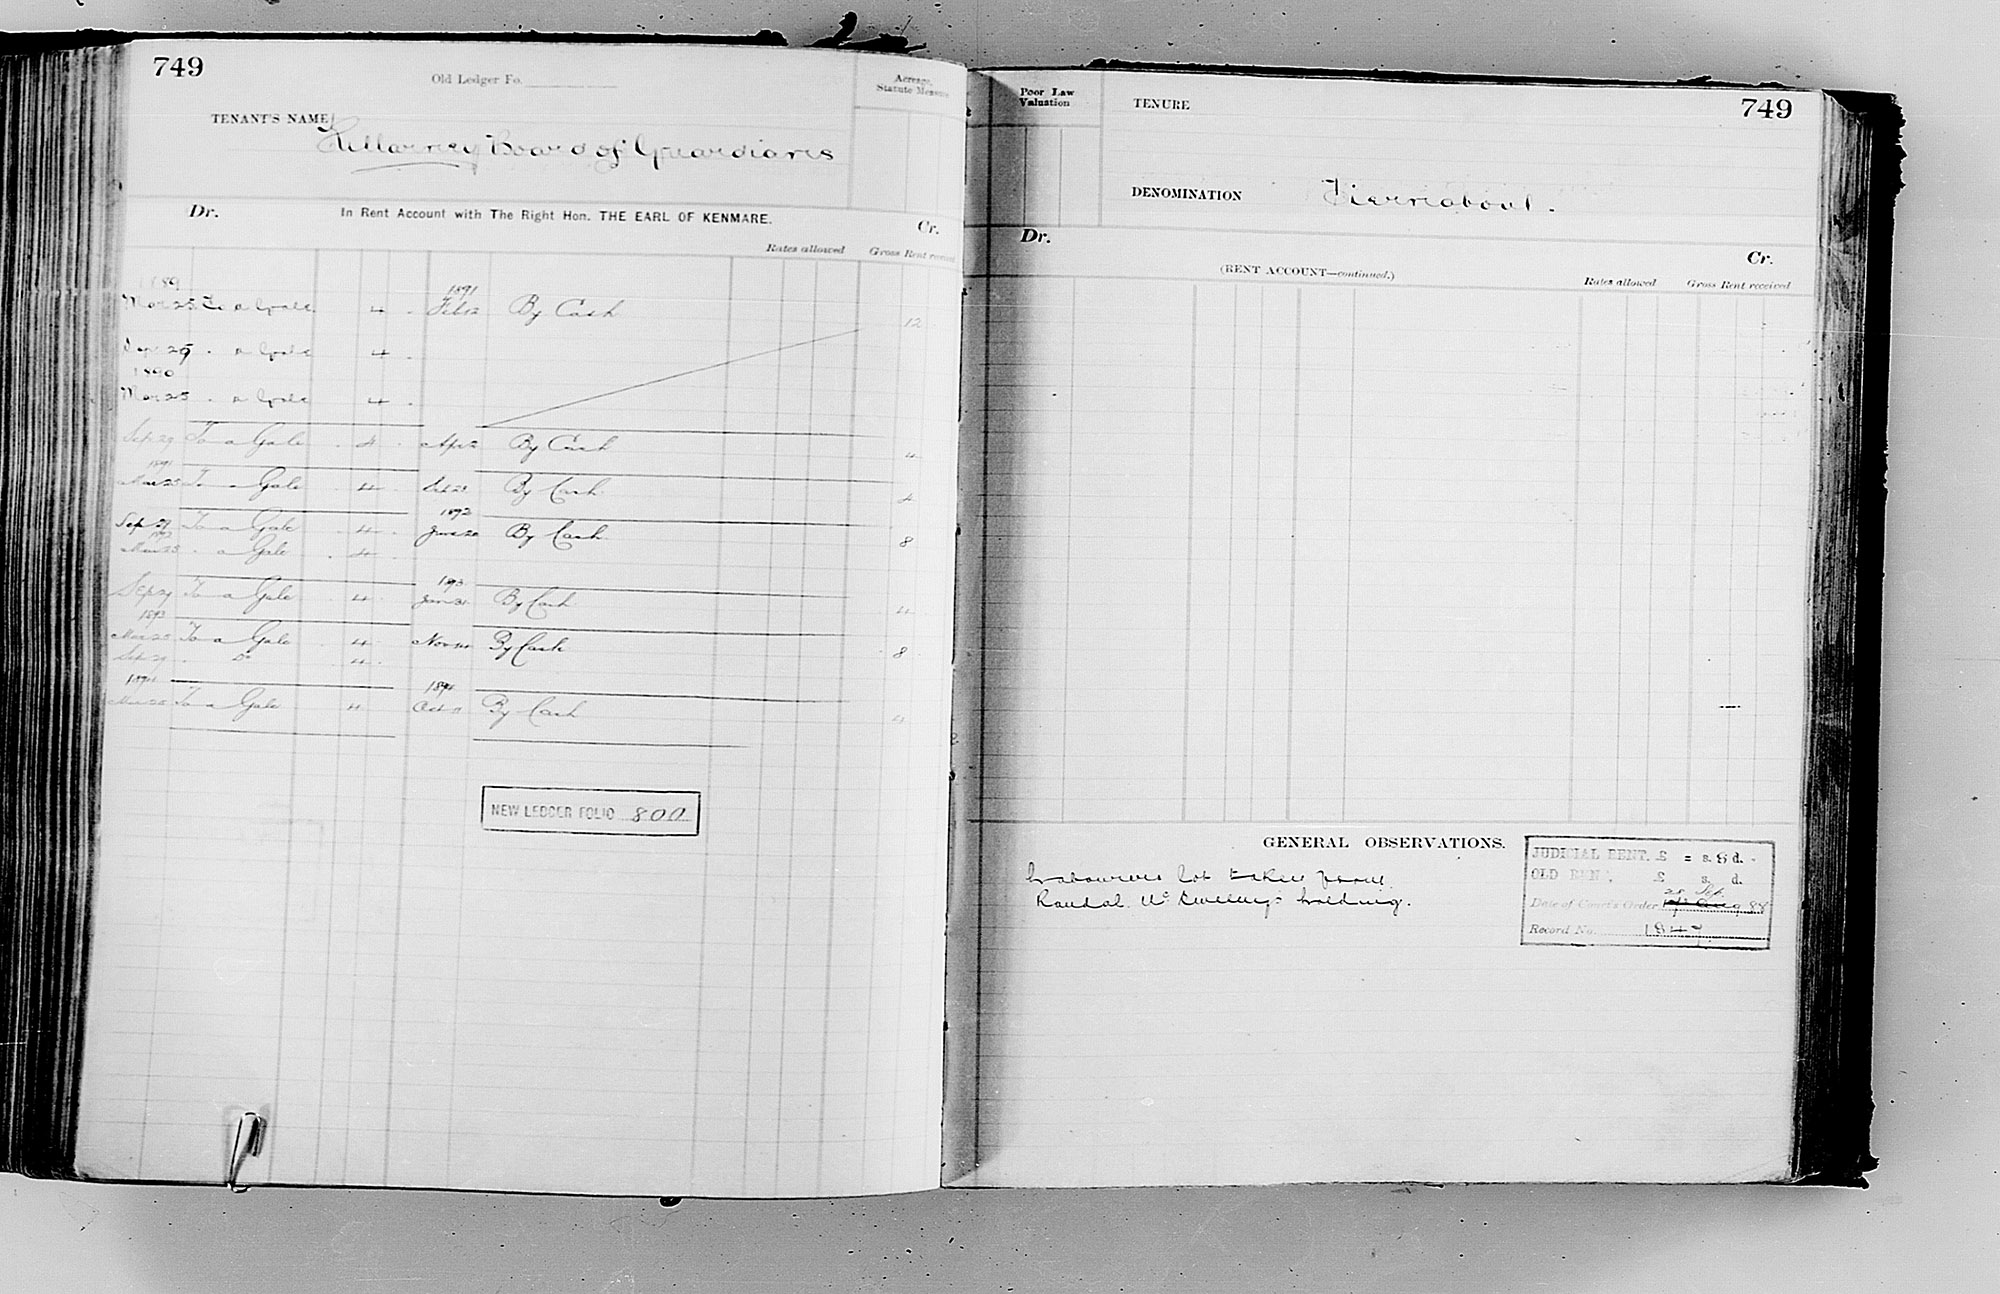 749
Old Ledger Fo.
Acreage, Statute Measure
TENANT'S NAME
Killarney Board of Guardians
Dr. In Rent Account with The Right Hon. THE EARL OF KENMARE. Cr.
Rates allowed Gross Rent received
1889 1891
Mar 25 To a Gale 4 - Feb 12 By Cash 12
Sep 29 . a Gale 4 -
1890
Mar 25 . a Gale 4 -
Sep 29 To a Gale . 4 - Apr 2 By Cash 4
1891
Mar 25 To a Gale 4 - Sep 23 By Cash 4
1892
Sep 29 To a Gale . 4 - June 20 By Cash 8
1892
Mar 25 . a Gale . 4 -
1893
Sep 29 To a Gale . 4 - Jan 31 By Cash 4
1893
Mar 25 To a Gale . 4 - Nov 14 By Cash 8
Sep 29 . Do 4 -
1894 1894
Mar 25 To a Gale 4 Oct 11 By Cash 4
NEW LEDGER FOLIO 800
Poor Law Valuation
TENURE
749
DENOMINATION Tiernaboul.
Dr. Cr.
(RENT ACCOUNT—continued.)
Rates allowed Gross Rent received
GENERAL OBSERVATIONS.
Labourers lot taken from
Randal Mc Sweeny's holding.
JUDICIAL RENT, £ = s. 8 d. -
OLD RENT, £ s. d.
28 Sep.
Date of Court's Order 17 Aug 88
Record No. 1847